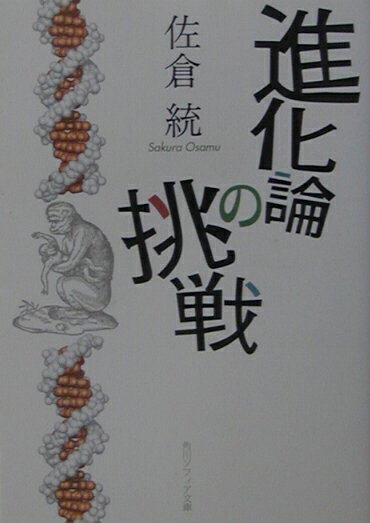 進化論
の
挑戦
佐倉 統
Sakura Osamu
角川ソフィア文庫